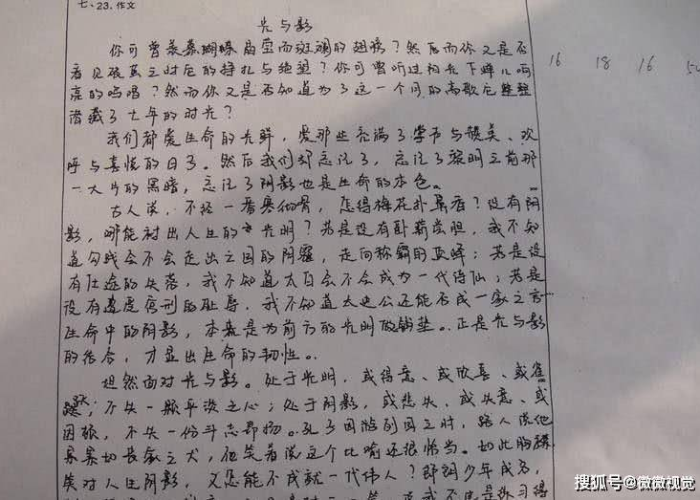 七、23.作文
光与影
你可曾羡慕蝴蝶 而斑斓的翅膀？然而你又是否
看见破茧之时它的挣扎与绝望？你可曾听过初光下蝉儿响
亮的鸣唱？然而你又是否知道为了这一个月的高歌它整整
潜藏了七年的时光？
我们都爱生命的光鲜，爱那些充满了掌声与赞美、欢
呼与喜悦的日子。然后我们却忘记了，忘记了黎明之前那
一大片的黑暗，忘记了阴影也是生命的本色。
古人说，不经一番寒彻骨，怎得梅花扑鼻香？没有阴
影，哪能衬出人生的光明？若是没有卧薪尝胆，我不知
道勾践会不会走出亡国的阴霾，走向称霸的巅峰；若是没
有仕途的失落，我不知道太白会不会成为一代诗仙；若是
没有遭虐宫刑的耻辱，我不知道太史公还能否成一家之言
生命中的阴影，本来是为前方的光明做铺垫。正是光与影
的结合，才显出生命的韧性。
坦然面对光与影。处于光明，或得意、或欣喜、或雀
跃，不失一颗平淡之心；处于阴影，或悲失、或失意、或
困顿，不失一份斗志昂扬。孔子周游列国之时，路人说他
累累如丧家之犬，他笑着说这个比喻还很恰当。如此胸襟
笑对人生阴影，又怎能不成就一代伟人？即调少年成名，
16 18 16 50
搜狐号@微微视觉